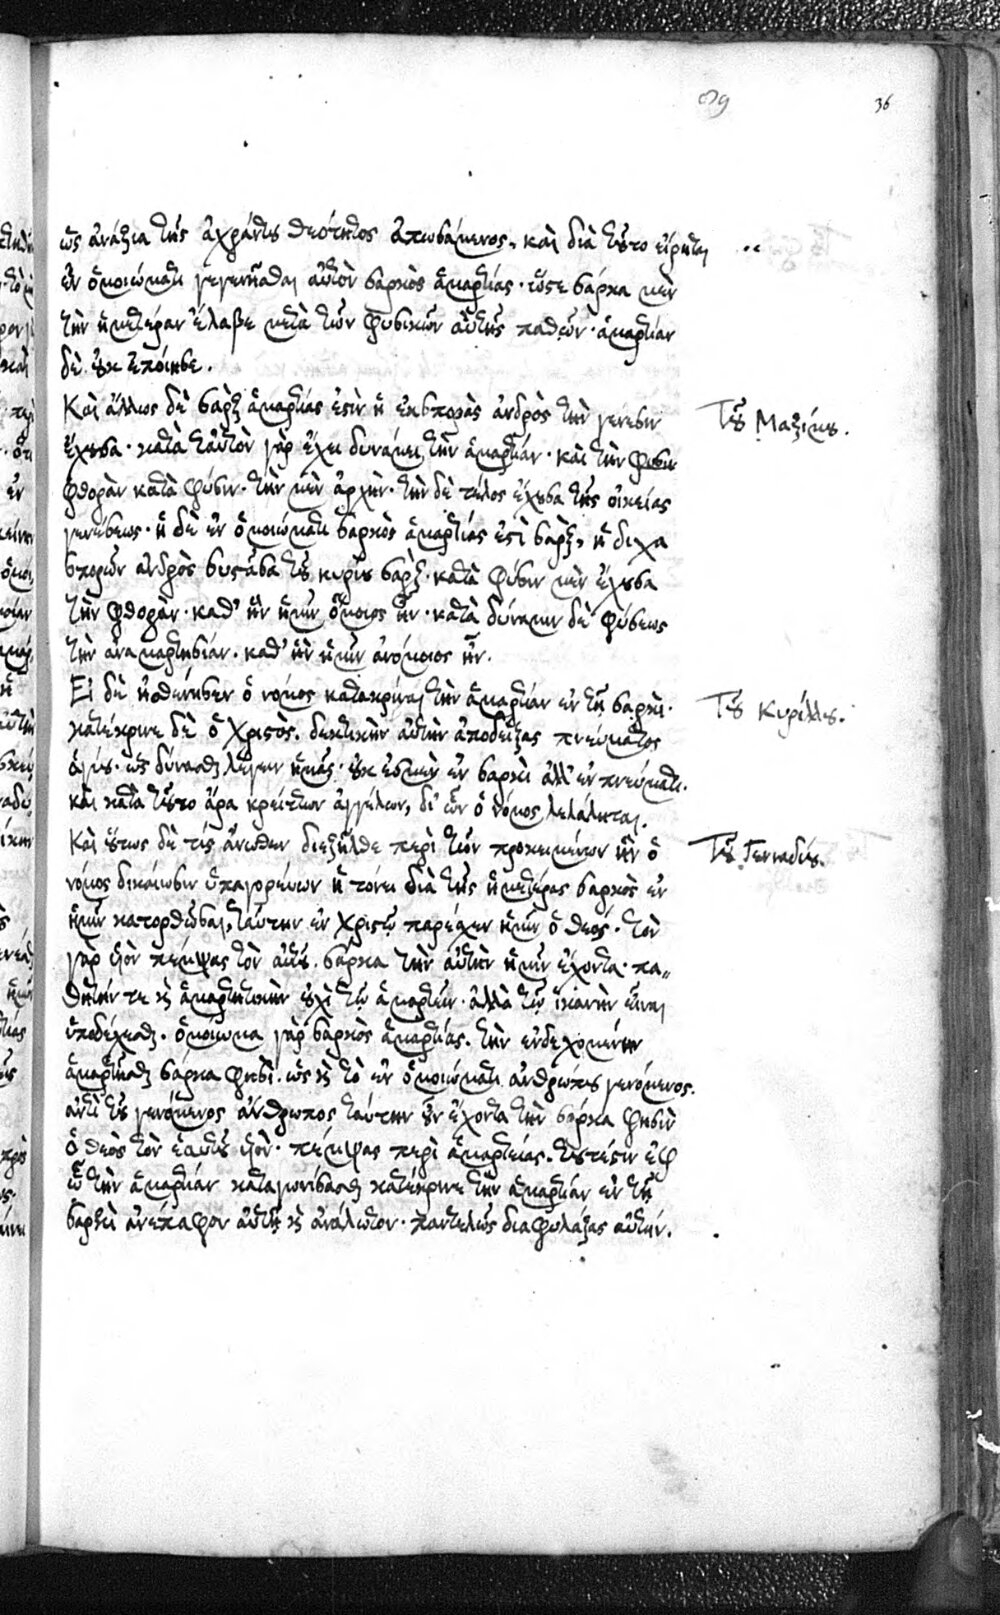 36
ὡς ἀνάξια τῆς ἀχράντου θεότητος ἀπωσάμενος, καὶ διὰ τοῦτο εἴρηται
ἐν ὁμοιώματι γεγενῆσθαι αὐτὸν σαρκὸς ἁμαρτίας· ὥστε σάρκα μὲν
τὴν ἡμετέραν ἔλαβε μετὰ τῶν φυσικῶν αὐτῆς παθῶν· ἁμαρτίαν
δὲ οὐκ ἐποίησε.
Καὶ ἄλλως δὲ σὰρξ ἁμαρτίας ἐστὶν ἡ ἐκ σπορᾶς ἀνδρὸς τὴν γένεσιν
Τοῦ Μαξίμου.
ἔχουσα· κατὰ ταὐτὸν γὰρ ἔχει δυνάμει τὴν ἁμαρτίαν· καὶ τὴν φύσιν
φθορὰν κατὰ φύσιν· τὴν μὲν ἀρχὴν· τὴν δὲ τέλος ἔχουσα τῆς οἰκείας
γενέσεως· ἡ δὲ ἐν ὁμοιώματι σαρκὸς ἁμαρτίας ἐστὶ σὰρξ, ἡ δίχα
σπορῶν ἀνδρὸς συστᾶσα τοῦ κυρίου σὰρξ· κατὰ φύσιν μὲν ἔχουσα
τὴν φθορὰν· καθ' ἣν ἡμῖν ὅμοιος ἦν· κατὰ δύναμιν δὲ φύσεως
τὴν ἀναμαρτησίαν· καθ' ἣν ἡμῖν ἀνόμοιος ἦν.
Εἰ δὲ ἠσθένησεν ὁ νόμος κατακρίναι τὴν ἁμαρτίαν ἐν τῇ σαρκὶ·
Τοῦ Κυρίλλου.
κατέκρινε δὲ ὁ Χριστὸς. δεκτικὴν αὐτὴν ἀποδείξας πνεύματος
ἁγίου· ὡς δύνασθαι λέγειν ἡμᾶς· οὐκ ἐσμὲν ἐν σαρκὶ ἀλλ' ἐν πνεύματι.
καὶ κατὰ τοῦτο ἄρα κρείττων ἀγγέλων, δι' ὧν ὁ νόμος λελάληται.
Καὶ οὕτως δὲ τίς ἄνωθεν διεξῆλθε περὶ τῶν προκειμένων ἣν ὁ
Τοῦ Γενναδίου.
νόμος δικαίωσιν ὑπαγορεύων ἠτόνει διὰ τῆς ἡμετέρας σαρκὸς ἐν
ἡμῖν κατορθῶσαι, ταύτην ἐν Χριστῷ παρέσχεν ἡμῖν ὁ θεός· τὸν
γὰρ υἱὸν πέμψας τὸν αὐτοῦ. σάρκα τὴν αὐτὴν ἡμῖν ἔχοντα· πα-
θητήν τε καὶ ἁμαρτητικὴν οὐχὶ τῷ ἁμαρτεῖν· ἀλλὰ τῷ ἱκανὴν εἶναι
ὑποδέχεσθαι· ὁμοίωμα γὰρ σαρκὸς ἁμαρτίας. τὴν ἐνδεχομένην
ἁμαρτῆσαι σάρκα φησὶ· ὡς καὶ τὸ ἐν ὁμοιώματι ἀνθρώπου γενόμενος.
ἀντὶ τοῦ γενόμενος ἄνθρωπος ταύτην οὖν ἔχοντα τὴν σάρκα φησὶν
ὁ θεὸς τὸν ἑαυτοῦ υἱὸν· πέμψας περὶ ἁμαρτείας. τουτέστιν ἐφ
ᾧ τὴν ἁμαρτίαν καταγωνίσασθαι κατέκρινε τὴν ἁμαρτίαν ἐν τῇ
σαρκὶ ἀνέπαφον αὐτῇ καὶ ἀνάλωτον· παντελῶς διαφυλάξας αὐτήν.